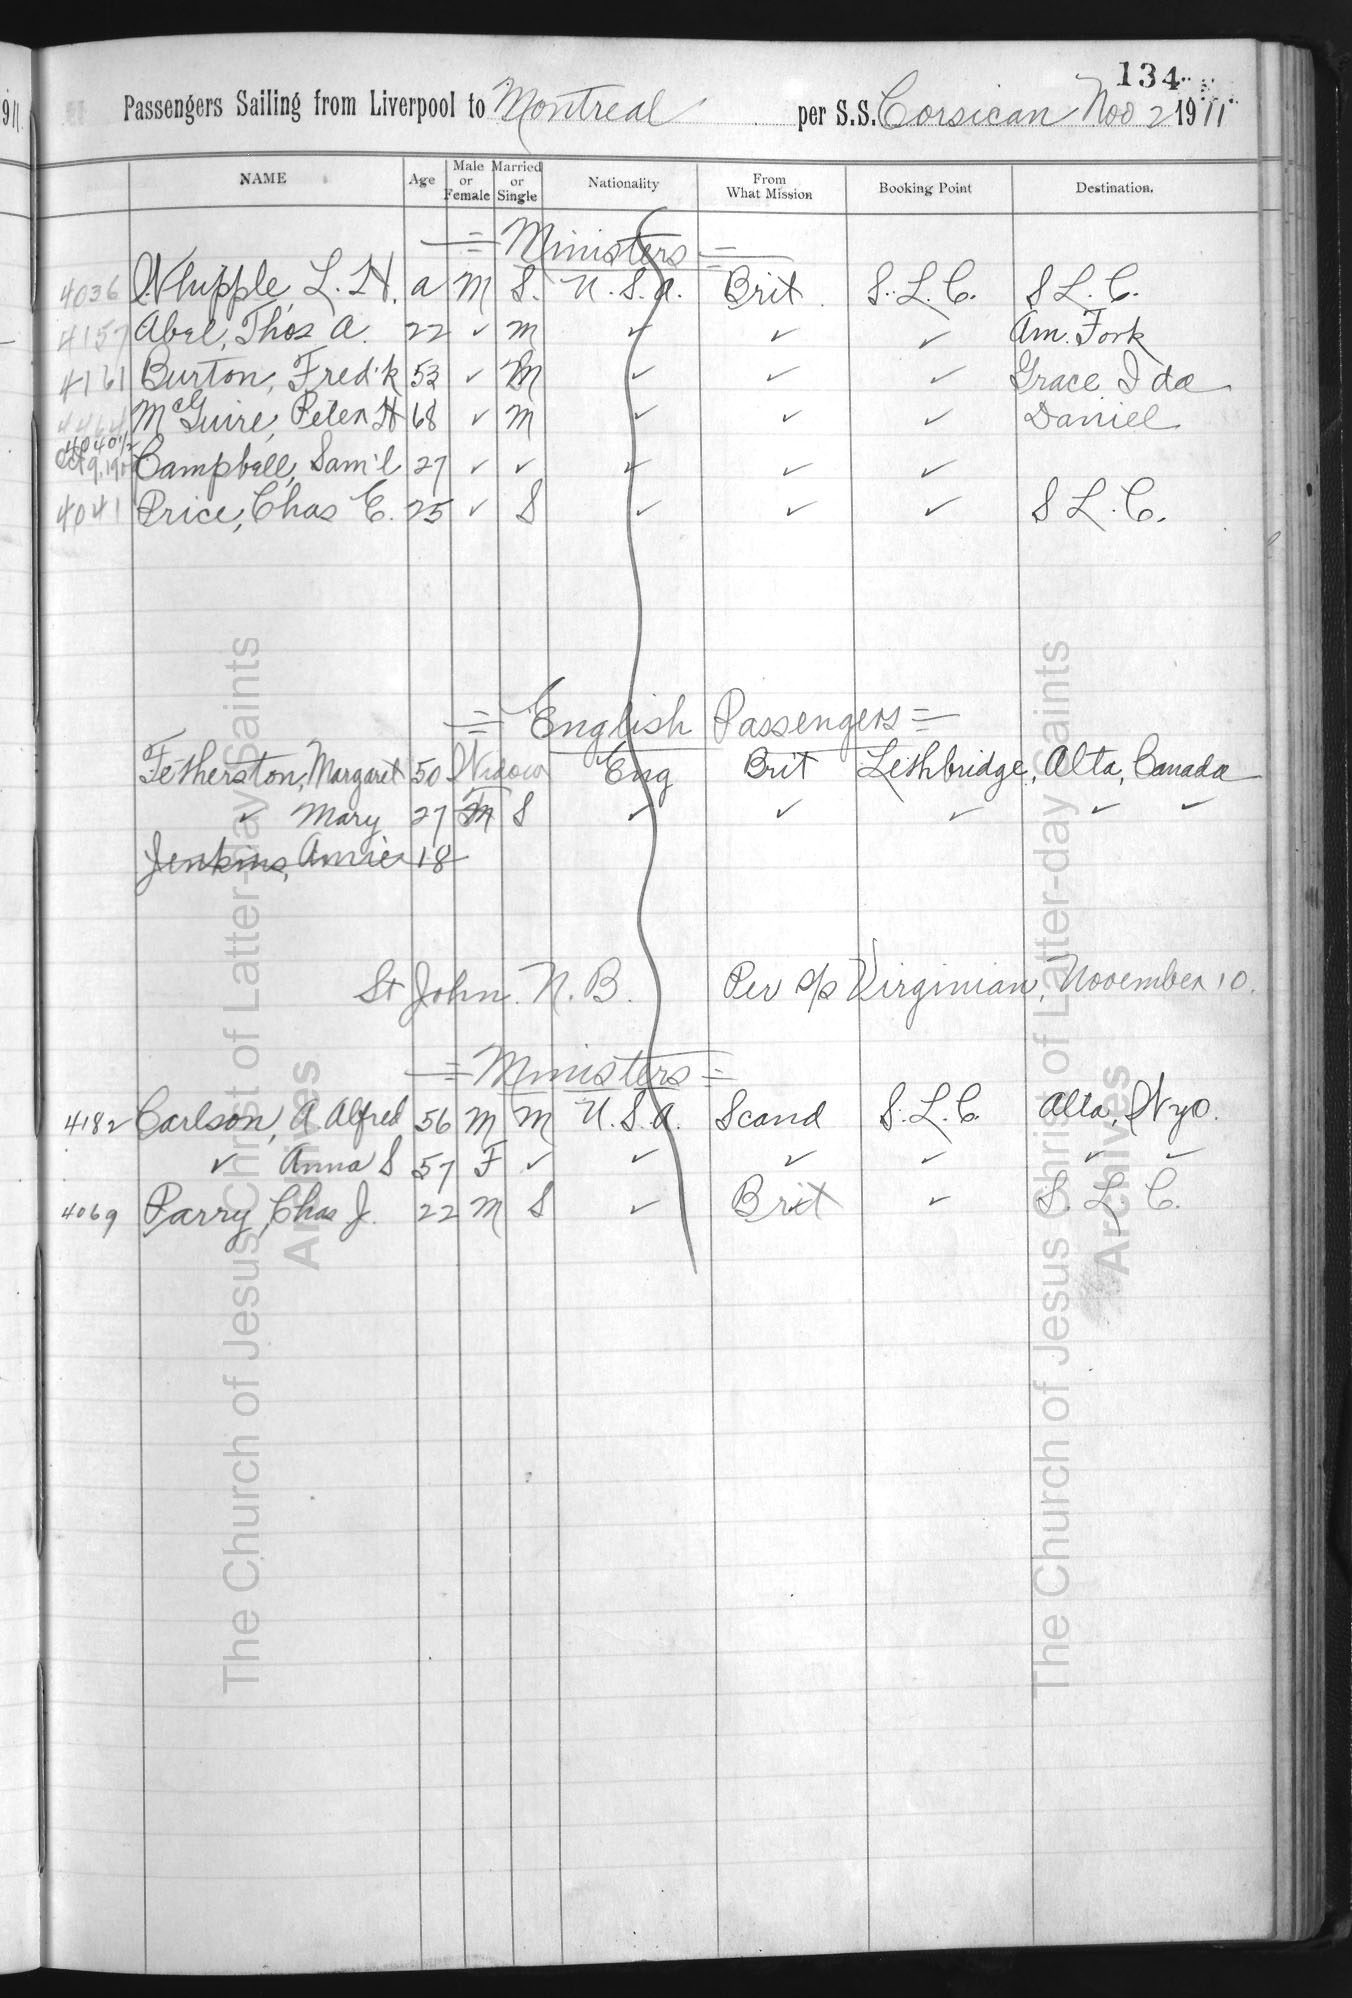 911
134
Passengers Sailing from Liverpool to Montreal per S.S. Corsican Nov 2 1911
NAME Age Male or Female Married or Single Nationality From What Mission Booking Point Destination.
= Ministers =
4036 Whipple, L. H. a M S. U.S.A. Brit. S.L.C. S L.C.
4157 Abel, Thos A. 22 ✓ m ✓ ✓ ✓ Am. Fork
4161 Burton, Fred'k 53 ✓ M ✓ ✓ ✓ Grace Ida
4464 McGuire, Peter H 68 ✓ m ✓ ✓ ✓ Daniel
4040½ Oct 9, Campbell, Sam'l 27 ✓ ✓ ✓ ✓ ✓
4041 Price, Chas E. 25 ✓ S ✓ ✓ ✓ S L.C.
= English Passengers =
Fetherston, Margaret 50 Widow Eng Brit Lethbridge, Alta, Canada
✓ Mary 27 F S ✓ ✓ ✓ ✓ ✓
Jenkins, Annie 18
St John. N.B. Per s/s Virginian, November 10.
= Ministers =
4182 Carlson, A Alfred 56 M M U.S.A. Scand S.L.C. Alta, Wyo.
✓ Anna S 57 F ✓ ✓ ✓ ✓ ✓ ✓
4069 Parry, Chas J. 22 M S ✓ Brit ✓ S. L. C.
The Church of Jesus Christ of Latter-day Saints
Archives
The Church of Jesus Christ of Latter-day Saints
Archives